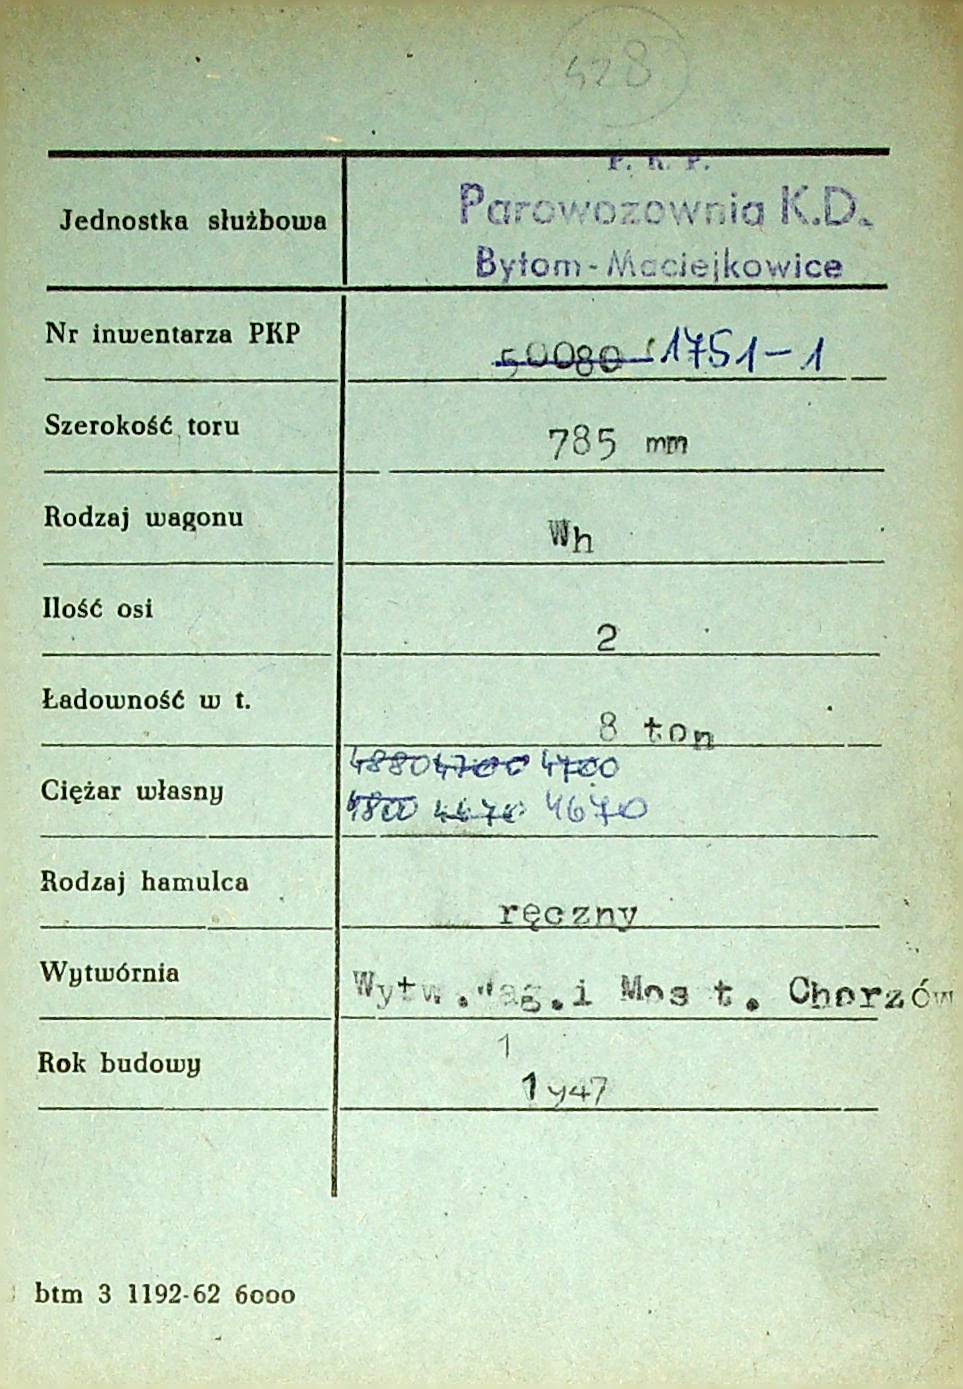 428
P. K. P.
Jednostka służbowa Parowozownia K.D.
Bytom-Maciejkowice
Nr inwentarza PKP 50080 1751-1
Szerokość toru 785 mm
Rodzaj wagonu Wh
Ilość osi 2
Ładowność w t. 8 ton
4880 4700 4700
Ciężar własny 4800 4670 4670
Rodzaj hamulca ręczny
Wytwórnia Wytw.Wag.i Most. Chorzów
1
Rok budowy 1947
btm 3 1192-62 6000